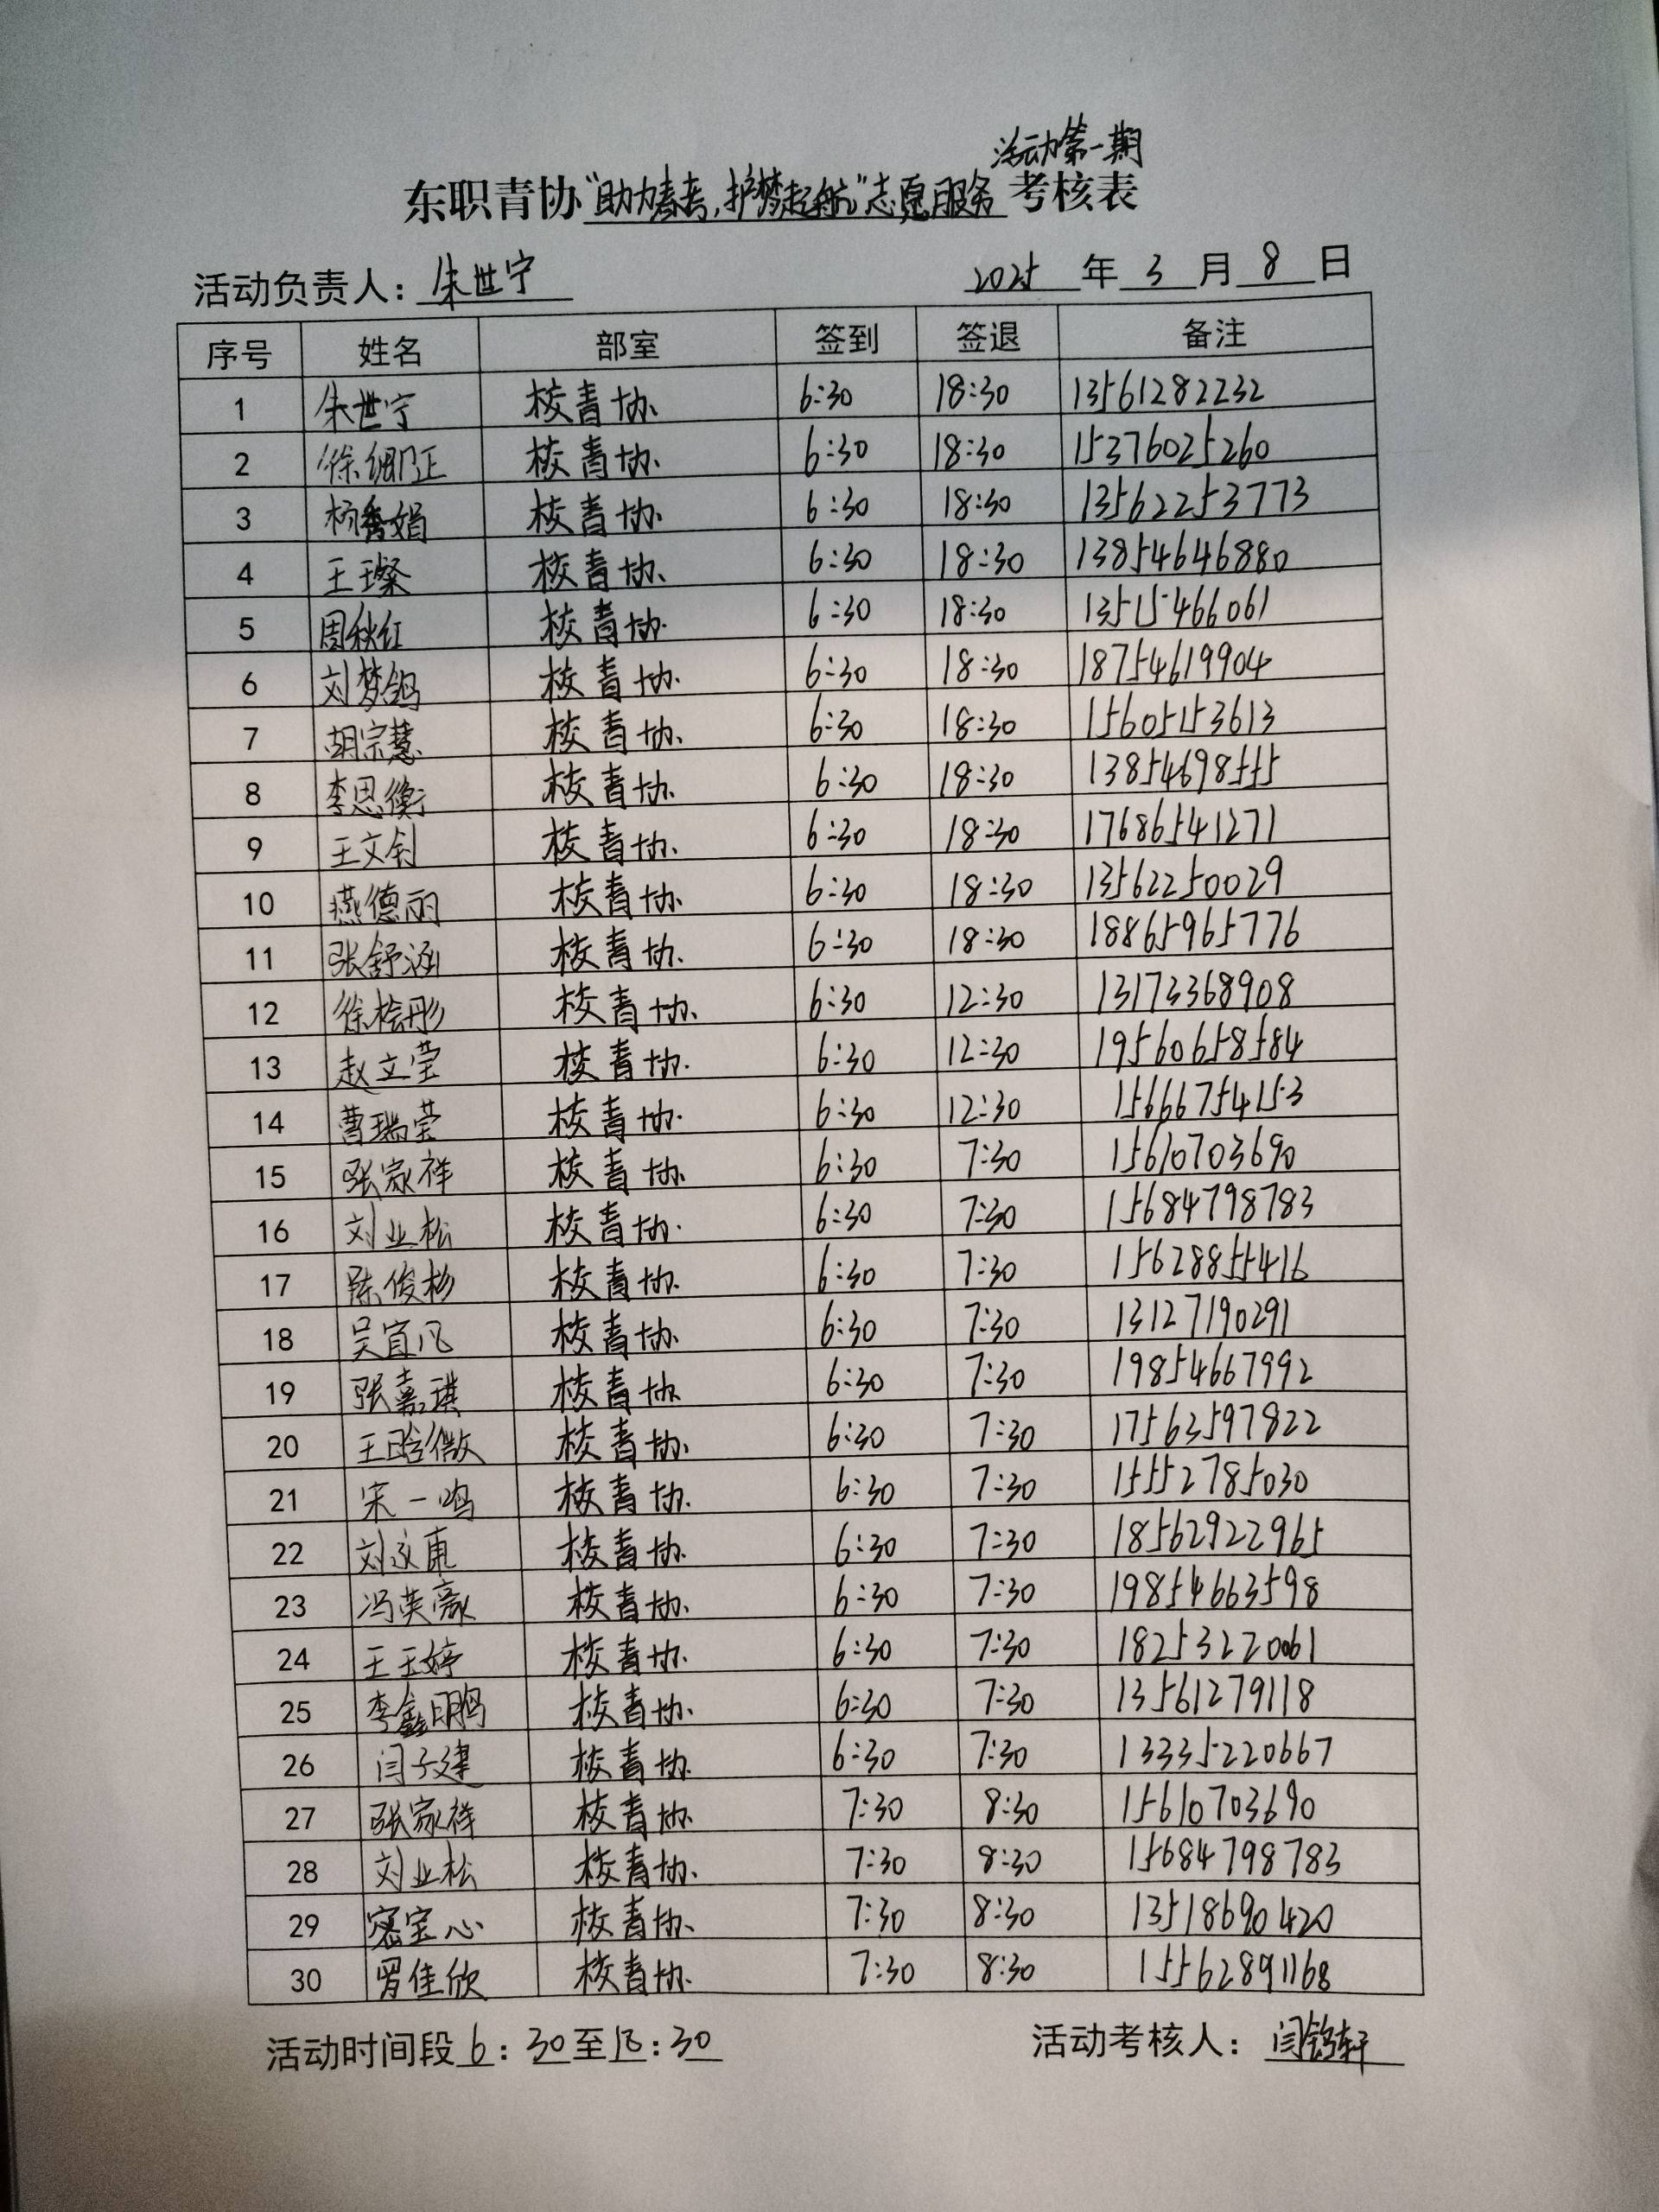 活动第一期
东职青协“助力春考,护梦起航”志愿服务考核表
活动负责人: 朱世宁 2025 年 3 月 8 日
序号 姓名 部室 签到 签退 备注
1 朱世宁 校青协 6:30 18:30 13561282232
2 徐绷正 校青协 6:30 18:30 15376025260
3 杨秀娟 校青协 6:30 18:30 13562253773
4 王璨 校青协 6:30 18:30 13854646880
5 周秋红 校青协 6:30 18:30 13515466061
6 刘梦鸽 校青协 6:30 18:30 18754619904
7 胡宗慧 校青协 6:30 18:30 15605153613
8 李思衡 校青协 6:30 18:30 13854698555
9 王文钊 校青协 6:30 18:30 17686541271
10 燕德丽 校青协 6:30 18:30 13562250029
11 张舒涵 校青协 6:30 18:30 18865965776
12 徐桧彤 校青协 6:30 12:30 13173368908
13 赵立莹 校青协 6:30 12:30 19560658584
14 曹瑞莹 校青协 6:30 12:30 15666754153
15 张家祥 校青协 6:30 7:30 15610703690
16 刘业松 校青协 6:30 7:30 15684798783
17 陈俊杉 校青协 6:30 7:30 15628855416
18 吴宜凡 校青协 6:30 7:30 13127190291
19 张嘉琪 校青协 6:30 7:30 19854667992
20 王晗微 校青协 6:30 7:30 17563597822
21 宋一鸣 校青协 6:30 7:30 15552785030
22 刘永康 校青协 6:30 7:30 18562922965
23 冯英豪 校青协 6:30 7:30 19854663598
24 王玉婷 校青协 6:30 7:30 18253220061
25 李鑫鹏 校青协 6:30 7:30 13561279118
26 闫子建 校青协 6:30 7:30 13335220667
27 张家祥 校青协 7:30 8:30 15610703690
28 刘业松 校青协 7:30 8:30 15684798783
29 密宝心 校青协 7:30 8:30 13518690420
30 罗佳欣 校青协 7:30 8:30 15562891168
活动时间段 6:30至18:30 活动考核人: 闫轩